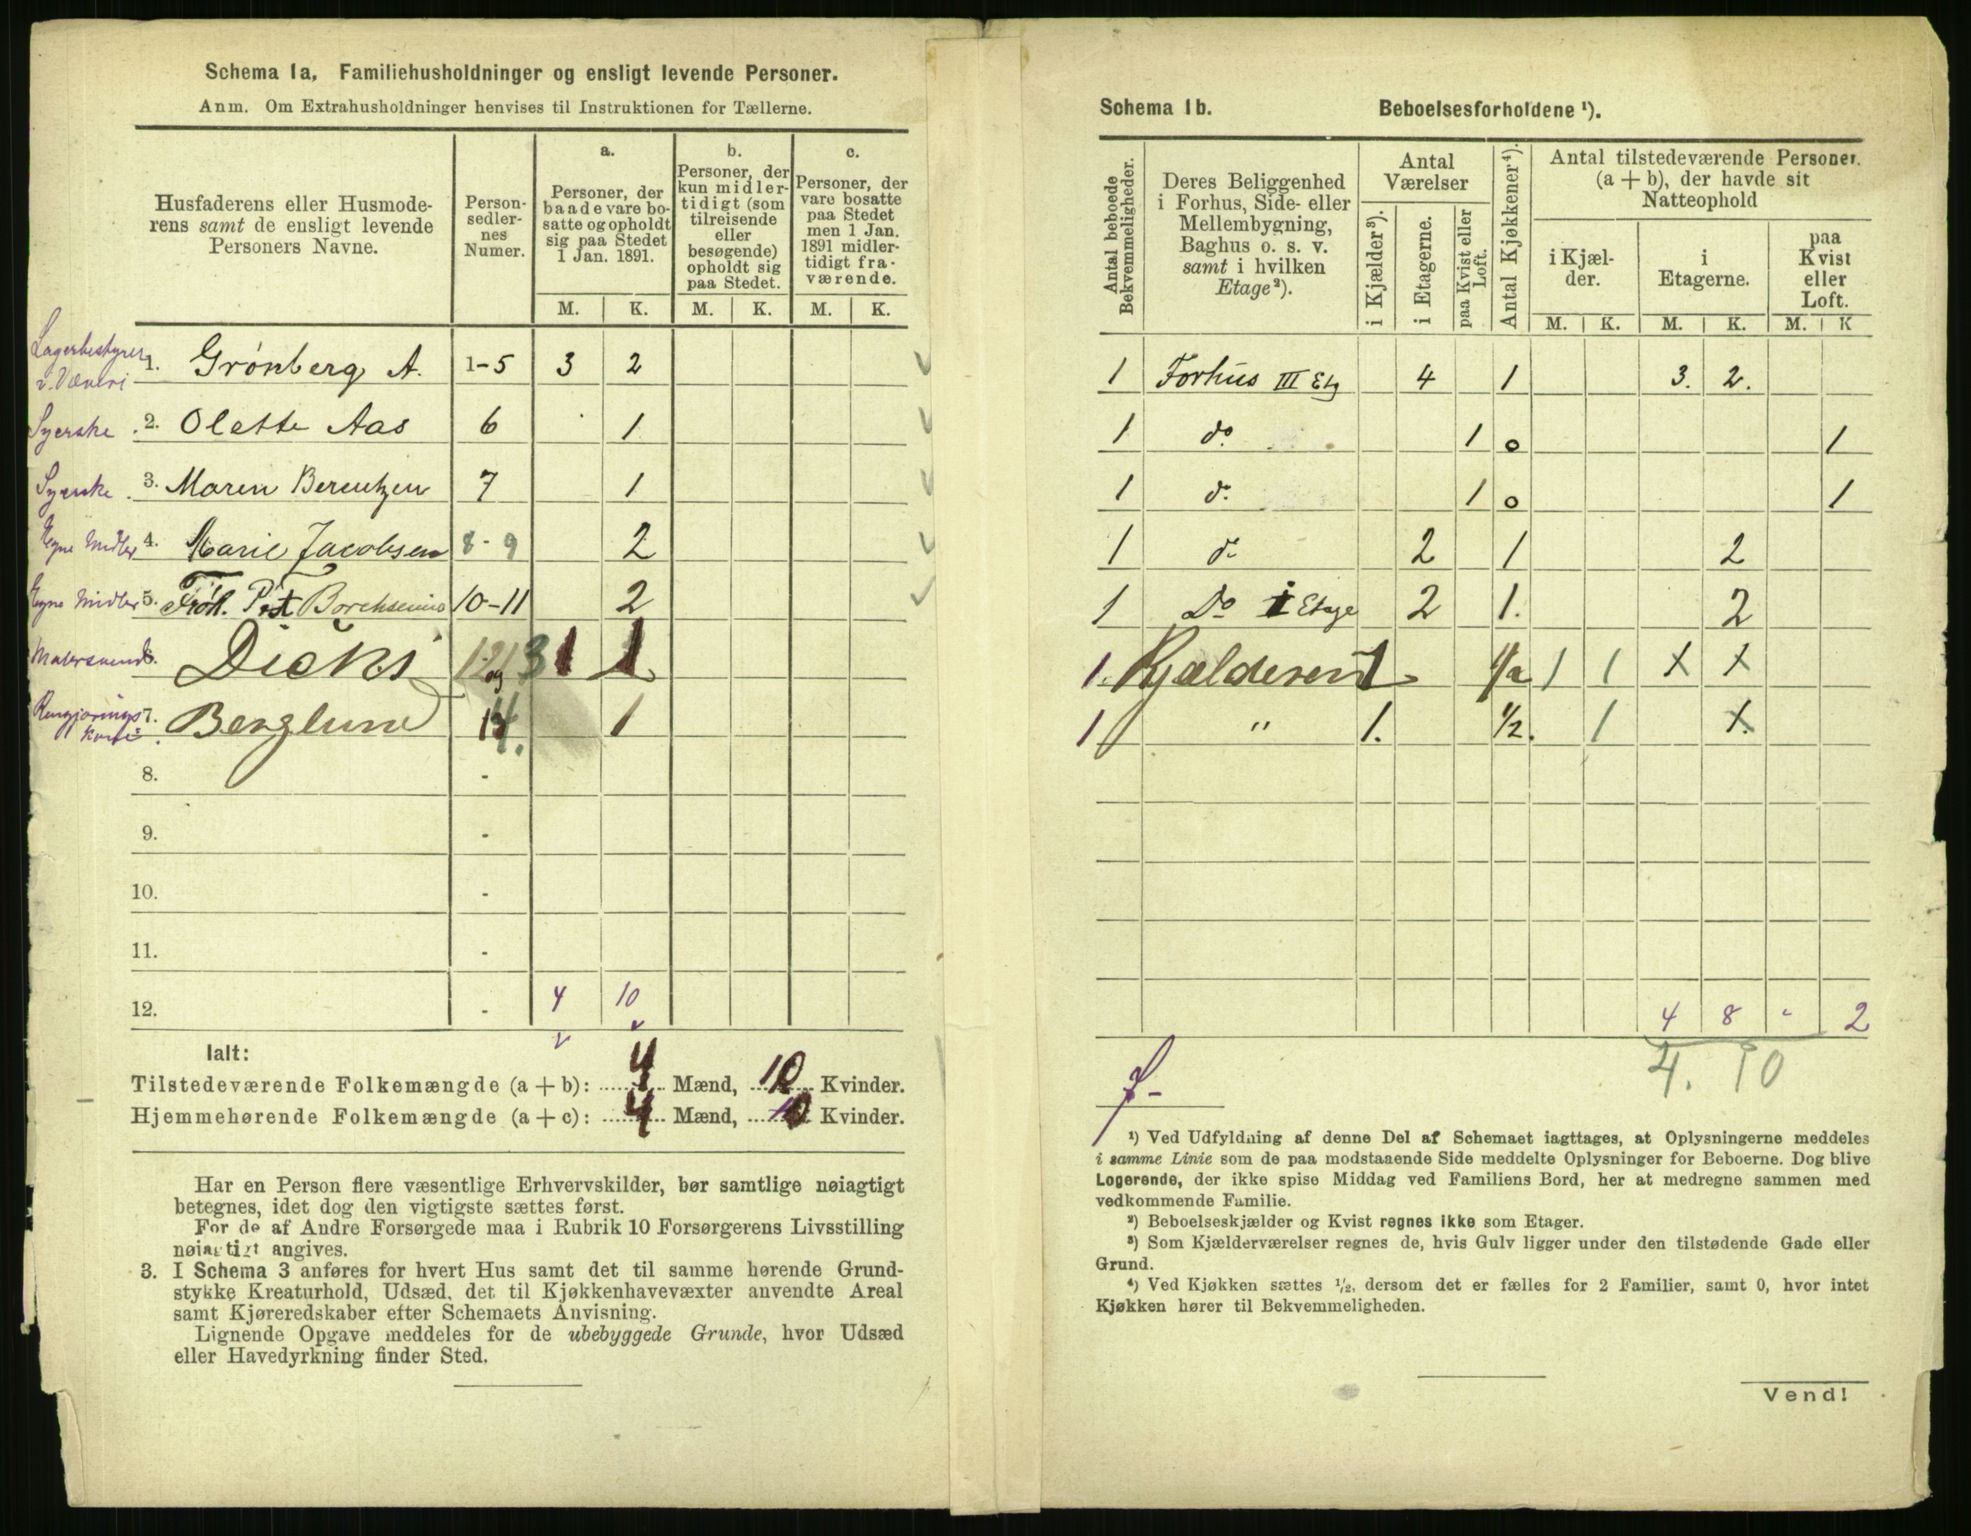 Schema 1a, Familiehusholdninger og ensligt levende Personer.
Anm. Om Extrahusholdninger henvises til Instruktionen for Tællerne.
Husfaderens eller Husmoderens samt de ensligt levende Personers Navne.
Personsedlernes Numer.
a.
Personer, der baade vare bosatte og opholdt sig paa Stedet 1 Jan. 1891.
b.
Personer, der kun midlertidigt (som tilreisende eller besøgende) opholdt sig paa Stedet.
c.
Personer, der vare bosatte paa Stedet men 1 Jan. 1891 midlertidigt fraværende.
M. K. M. K. M. K.
Lagerbestyrer v. Væveri 1. Grönberg A. 1-5 3 2
Syerske . 2. Olette Aas 6 1
Syerske . 3. Maren Berentzen 7 1
Egne Midler 4. Marie Jacobsen 8-9 2
Egne Midler 5. Frök. Borchsenius 10-11 2
Malersvend 6. Dicks 12 og 13 1 1
Rengjørings kone 7. Berglund 14. 1
8. -
9. -
10. -
11. -
12. - 4 10
Ialt:
Tilstedeværende Folkemængde (a + b): 4 Mænd, 10 Kvinder.
Hjemmehørende Folkemængde (a + c): 4 Mænd, 10 Kvinder.
Har en Person flere væsentlige Erhvervskilder, bør samtlige nøiagtigt
betegnes, idet dog den vigtigste sættes først.
For de af Andre Forsørgede maa i Rubrik 10 Forsørgerens Livsstilling
nøiagtigt angives.
3. I Schema 3 anføres for hvert Hus samt det til samme hørende Grund-
stykke Kreaturhold, Udsæd, det til Kjøkkenhavevæxter anvendte Areal
samt Kjøreredskaber efter Schemaets Anvisning.
Lignende Opgave meddeles for de ubebyggede Grunde, hvor Udsæd
eller Havedyrkning finder Sted.
Schema 1b. Beboelsesforholdene ¹).
Antal beboede Bekvemmeligheder.
Deres Beliggenhed i Forhus, Side- eller Mellembygning, Baghus o. s. v. samt i hvilken Etage²).
Antal Værelser
i Kjælder³).
i Etagerne.
paa Kvist eller Loft.
Antal Kjøkkener⁴).
Antal tilstedeværende Personer (a + b), der havde sit Natteophold
i Kjælder.
i Etagerne.
paa Kvist eller Loft.
M. K. M. K. M. K
1 Forhus III Etg 4 1 3. 2.
1 do. 1 0 1
1 do. 1 0 1
1 do. 2 1 2
1 Do 1 Etage 2 1. 2
1. Kjælderen 1 1/2 1 1 X X
1 " 1. 1/2. 1 X.
4 8 - 2
4. 10
7-
¹) Ved Udfyldning af denne Del af Schemaet iagttages, at Oplysningerne meddeles
i samme Linie som de paa modstaaende Side meddelte Oplysninger for Beboerne. Dog blive
Logerende, der ikke spise Middag ved Familiens Bord, her at medregne sammen med
vedkommende Familie.
²) Beboelseskjælder og Kvist regnes ikke som Etager.
³) Som Kjælderværelser regnes de, hvis Gulv ligger under den tilstødende Gade eller
Grund.
⁴) Ved Kjøkken sættes ¹/₂, dersom det er fælles for 2 Familier, samt 0, hvor intet
Kjøkken hører til Bekvemmeligheden.
Vend!